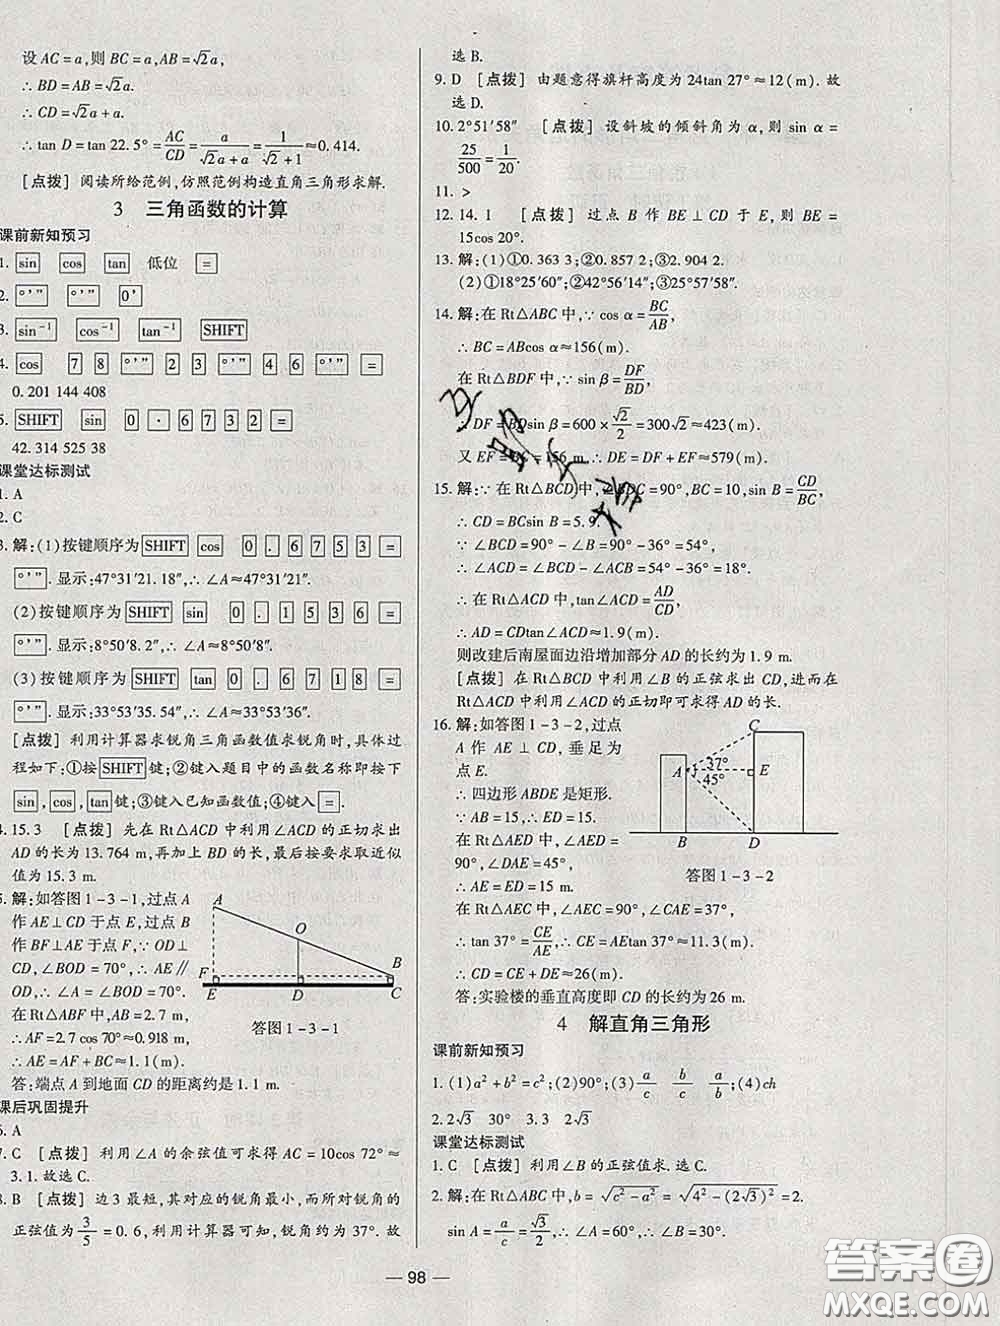 设 AC=a,则 BC=a,AB=√2a,
∴ BD=AB=√2a.
∴ CD=√2a+a.
∴ tan D=tan 22.5°=AC/CD=a/(√2a+a)=1/(√2+1)≈0.414.
[点拨] 阅读所给范例,仿照范例构造直角三角形求解.
3 三角函数的计算
课前新知预习
1. sin cos tan 低位 =
2. °'" °'" 0'
3. sin⁻¹ cos⁻¹ tan⁻¹ SHIFT
4. cos 7 8 °'" 2 3 °'" 4 6 °'" =
0.201 144 408
5. SHIFT sin 0 · 6 7 3 2 =
42.314 525 38
课堂达标测试
1. A
2. C
3. 解:(1)按键顺序为 SHIFT cos 0 . 6 7 5 3 =
°'" . 显示:47°31′21.18″,∴ ∠A≈47°31′21″.
(2)按键顺序为 SHIFT sin 0 . 1 5 3 6 =
°'" . 显示:8°50′8.2″,∴ ∠A≈8°50′8″.
(3)按键顺序为 SHIFT tan 0 . 6 7 1 8 =
°'" . 显示:33°53′35.54″,∴ ∠A≈33°53′36″.
[点拨] 利用计算器求锐角三角函数值求锐角时,具体过
程如下:①按 SHIFT 键;②键入题目中的函数名称即按下
sin , cos , tan 键;③键入已知函数值;④键入 = .
4. 15.3 [点拨] 先在 Rt△ACD 中利用∠ACD 的正切求出
AD 的长约为 13.764 m,再加上 BD 的长,最后按要求取近似
值为 15.3 m.
5. 解:如答图 1-3-1,过点 A
作 AE⊥CD 于点 E,过点 B
作 BF⊥AE 于点 F,∵ OD⊥
CD,∠BOD=70°,∴ AE∥
OD,∴ ∠A=∠BOD=70°.
在 Rt△ABF 中,AB=2.7 m,
∴ AF=2.7cos 70°≈0.918 m,
∴ AE=AF+BC≈1.1 m.
答:端点 A 到地面 CD 的距离约是 1.1 m.
A
O
F
B
E
D
C
答图 1-3-1
课后巩固提升
6. A
7. C [点拨] 利用∠A 的余弦值可求得 AC=10cos 72°≈
3.1. 故选 C.
8. B [点拨] 边 3 最短,其对应的锐角最小,而所对锐角的
正弦值为 3/5=0.6,利用计算器可知,锐角约为 37°. 故
选 B.
9. D [点拨] 由题意得旗杆高度为 24tan 27°≈12(m). 故
选 D.
10. 2°51′58″ [点拨] 设斜坡的倾斜角为 α,则 sin α=
25/500=1/20.
11. >
12. 14.1 [点拨] 过点 B 作 BE⊥CD 于 E,则 BE=
15cos 20°.
13. 解:(1)①0.363 3;②0.857 2;③2.904 2.
(2)①18°25′60″;②42°56′14″;③25°57′58″.
14. 解:在 Rt△ABC 中,∵ cos α=BC/AB,
∴ BC=ABcos α≈156(m).
在 Rt△BDF 中,∵ sin β=DF/BD,
∴ DF=BDsin β=600×√2/2=300√2≈423(m).
又 EF=BC=156 m,∴ DE=DF+EF≈579(m).
15. 解:∵ 在 Rt△BCD 中,∠BDC=90°,BC=10,sin B=CD/BC,
∴ CD=BCsin B=5.9.
∵ ∠BCD=90°-∠B=90°-36°=54°,
∴ ∠ACD=∠BCD-∠ACB=54°-36°=18°.
∴ 在 Rt△ACD 中,tan∠ACD=AD/CD,
∴ AD=CDtan∠ACD≈1.9(m).
则改建后南屋面边沿增加部分 AD 的长约为 1.9 m.
[点拨] 在 Rt△BCD 中利用∠B 的正弦求出 CD,进而在
Rt△ACD 中利用∠ACD 的正切即可求得 AD 的长.
16. 解:如答图 1-3-2,过点
A 作 AE⊥CD,垂足为
点 E.
∴ 四边形 ABDE 是矩形.
∵ AB=15,∴ ED=15.
在 Rt△AED 中,∠AED=
90°,∠DAE=45°,
∴ AE=ED=15 m.
在 Rt△AEC 中,∠AEC=90°,∠CAE=37°,
∴ tan 37°=CE/AE,∴ CE=AEtan 37°≈11.3(m).
∴ CD=CE+DE≈26(m).
答:实验楼的垂直高度即 CD 的长约为 26 m.
C
A
37°
45°
E
B
D
答图 1-3-2
4 解直角三角形
课前新知预习
1. (1)a²+b²=c²;(2)90°;(3)a/c b/c a/b;(4)ch
2. 2√3 30° 3. 3 2√3
课堂达标测试
1. C [点拨] 利用∠B 的正弦值求. 选 C.
2. 解:在 Rt△ABC 中,b=√(c²-a²)=√(4²-(2√3)²)=2.
sin A=a/c=√3/2,∴ ∠A=60°,∴ ∠B=30°.
98
答案圈
MXQE.COM